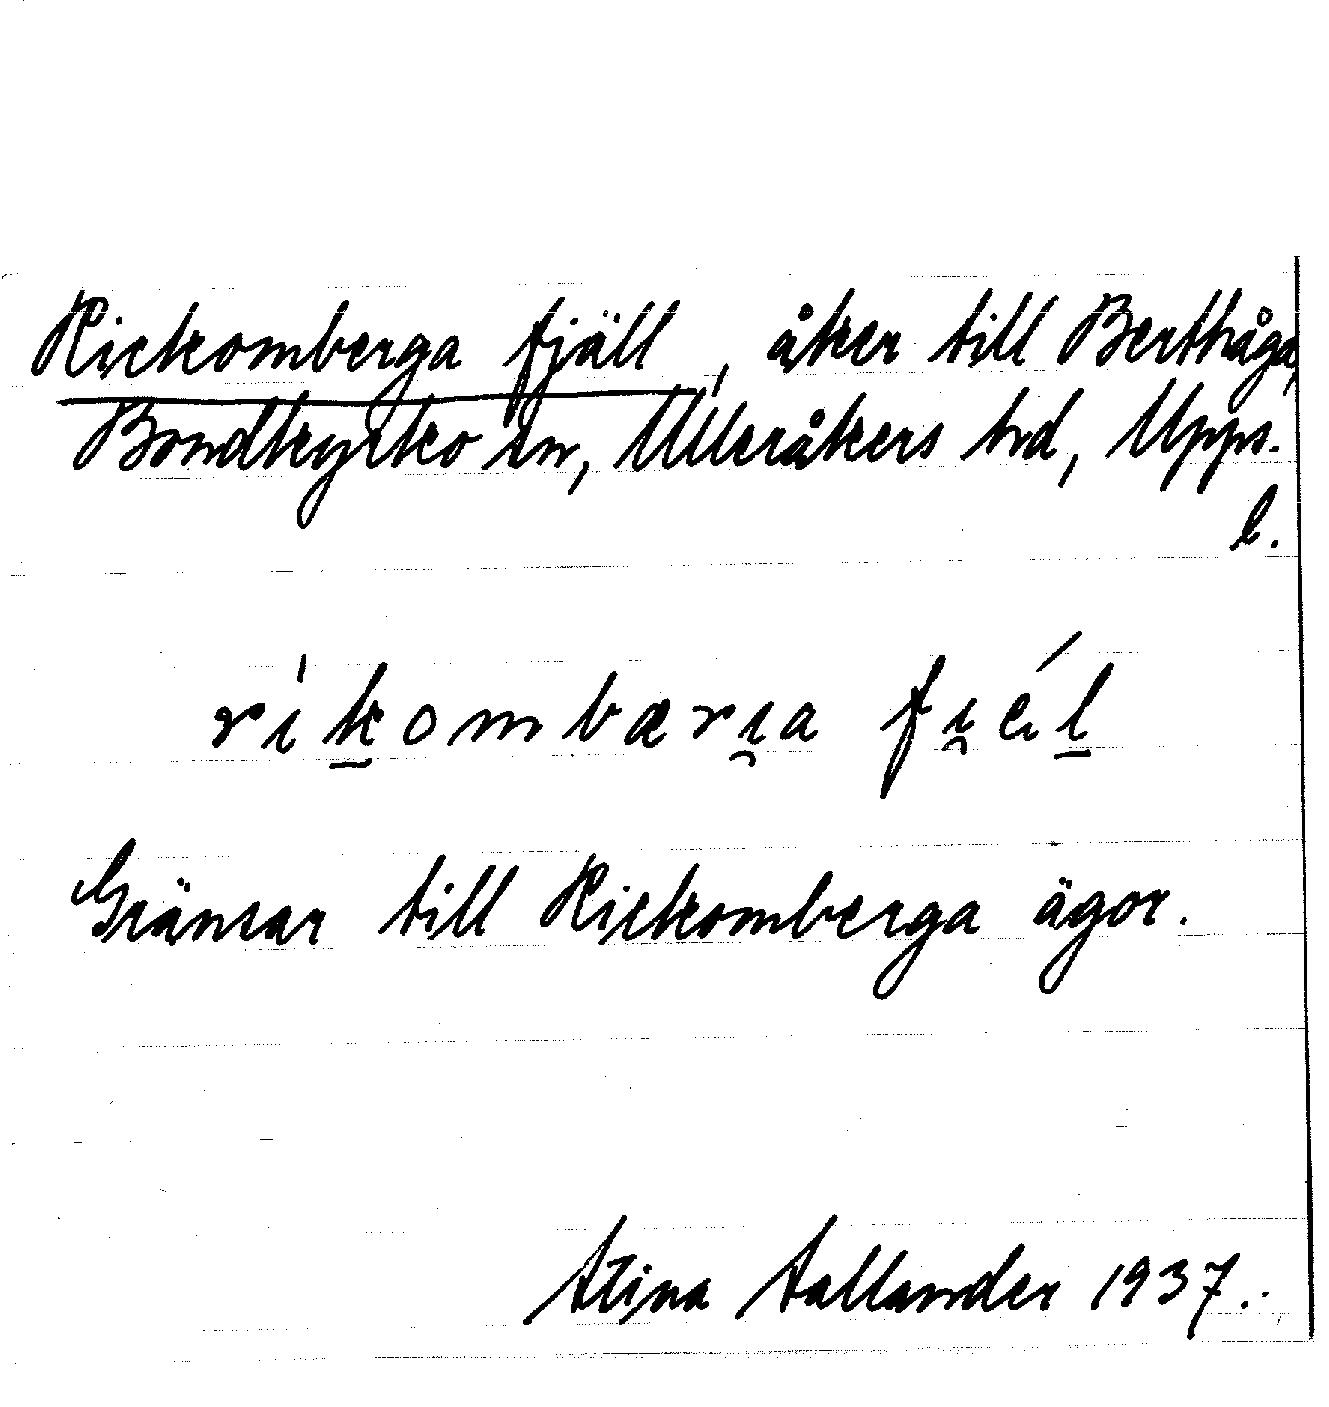 Rickomberga fjäll, åker till Berthåga,
Bondkyrko sn, Ulleråkers hrd, Upps.
l.
ri̍k̠ombærı̯a fı̯él̠
Gränsar till Rickomberga ägor.
Stina Sallander 1937.